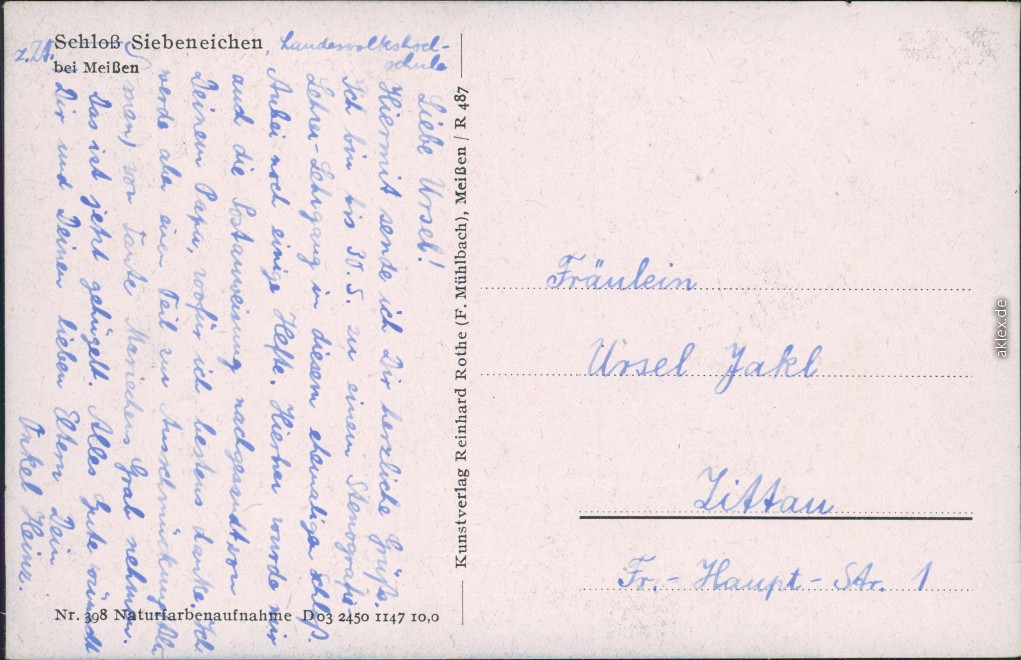 Schloß Siebeneichen
bei Meißen
z.Zt.
, Landesvolkshoch-
schule
Liebe Ursel!
Hiermit sende ich Dir herzliche Grüße.
Ich bin bis 30.5. zu einem Stenografie
Lehrer-Lehrgang in diesem ehemaligen Schloß.
Anbei noch einige Hefte. Hierher wurde mir
auch die Postanweisung nachgesandt von
Deinem Papa, wofür ich bestens danke. Ich
werde aber einen Teil zur Ausschmückung
men) von Tante Mariechens Grab nehmen.
Das ist jetzt gehügelt. Alles Gute wünscht
Dir und Deinen lieben Eltern Dein
Onkel Heinz.
Nr. 398 Naturfarbenaufnahme D03 2450 1147 10,0
Kunstverlag Reinhard Rothe (F. Mühlbach), Meißen / R 487
Fräulein
Ursel Jakl
Zittau
Fr.-Haupt-Str. 1
aklex.de